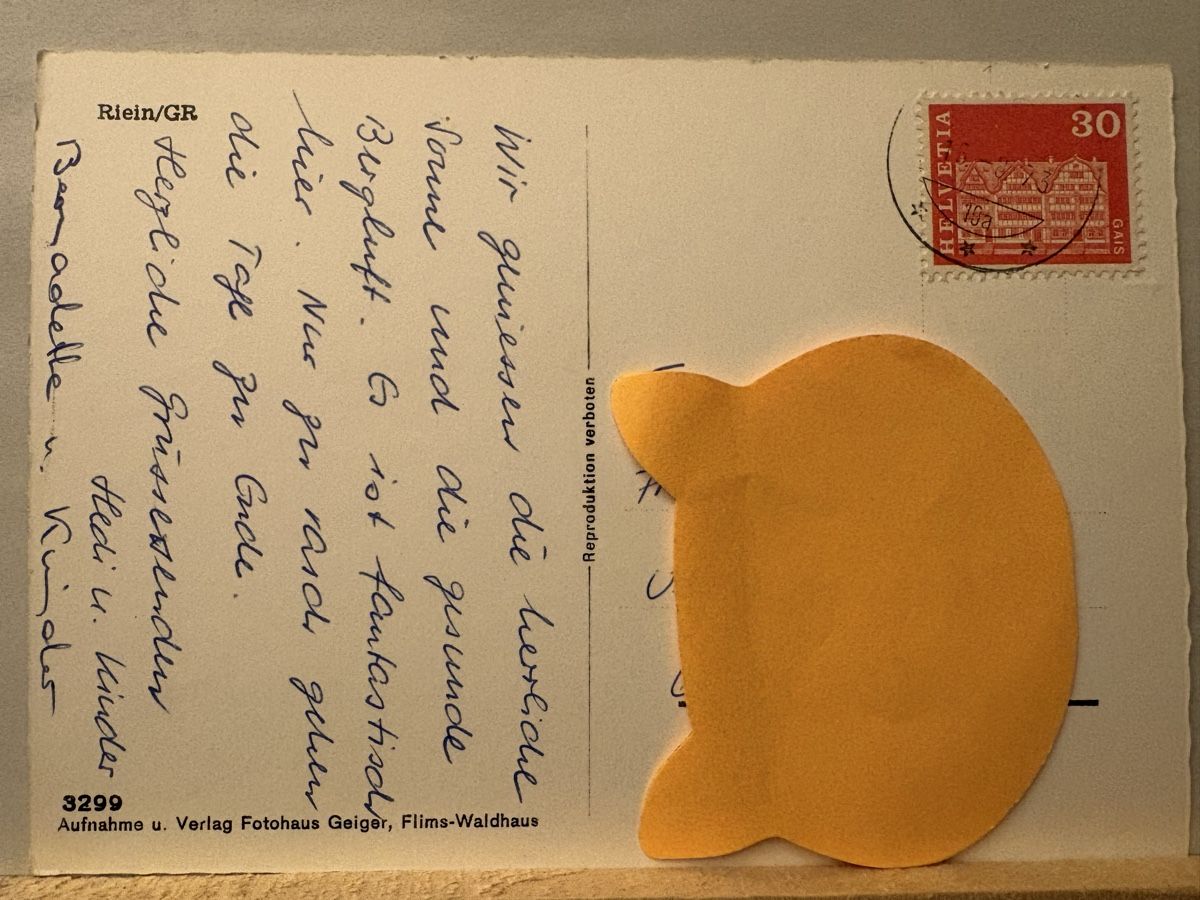 Riein/GR
Wir geniessen die herrliche
Sonne und die gesunde
Bergluft. Es ist fantastisch
hier. Nur zu rasch gehen
die Tage zu Ende.
Herzliche Grüsse senden
Hedi u. Kinder
Bernadette u. Kinder
3299
Aufnahme u. Verlag Fotohaus Geiger, Flims-Waldhaus
Reproduktion verboten
HELVETIA
30
GAIS
16a